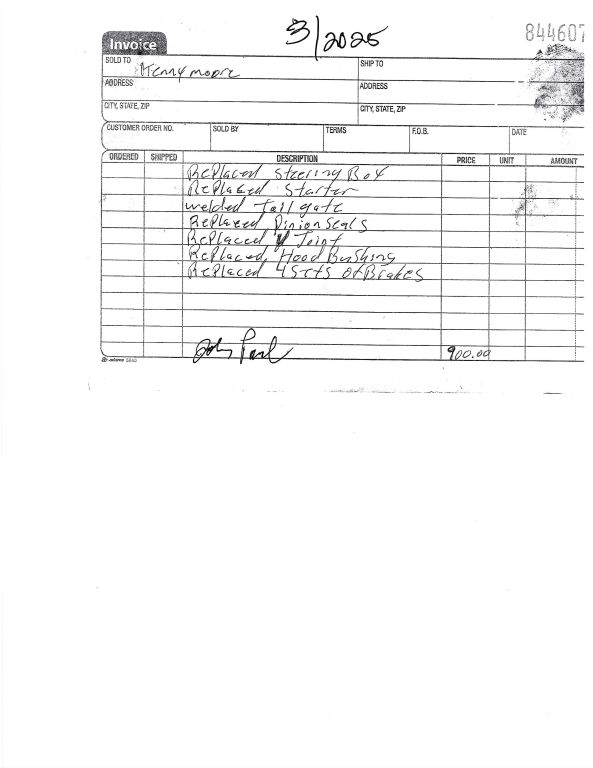 3/2025
844607
Invoice
SOLD TO Henny moore
SHIP TO
ADDRESS
ADDRESS
CITY, STATE, ZIP
CITY, STATE, ZIP
CUSTOMER ORDER NO. SOLD BY TERMS F.O.B. DATE
ORDERED SHIPPED DESCRIPTION PRICE UNIT AMOUNT
Replaced Steering Box
Replaced Starter
welded Tail gate
Replaced Pinion Seals
Replaced U Joint
Replaced Hood Bushing
Replaced 4 Sets of Brakes
900.00
adams 5840